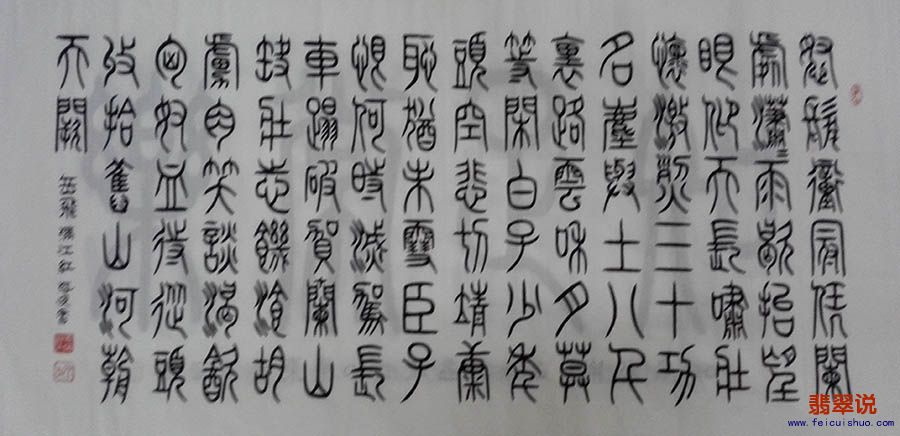 怒髮衝冠凭闌
處瀟〻雨歇抬望
眼仰天長嘯壯
懷激烈三十功
名塵與土八千
裏路雲和月莫
等閑白了少年
頭空悲切靖康
恥猶未雪臣子
恨何時滅駕長
車蹋破賀蘭山
缺壯志饑湌胡
虜肉笑談渴飲
匈奴血待從頭
收拾舊山河朝
天闕
岳飛滿江紅
翡翠说
www.feicuishuo.com